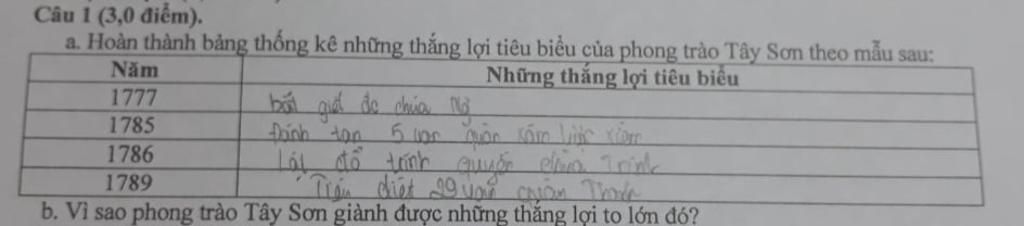 Câu 1 (3,0 điểm).
a. Hoàn thành bảng thống kê những thắng lợi tiêu biểu của phong trào Tây Sơn theo mẫu sau:
Năm Những thắng lợi tiêu biểu
1777 bắt giết đc chúa Ng
1785 Đánh tan 5 vạn quân xâm lược xiêm
1786 Lật đổ chúa Trịnh
1789 diệt 29 vạn quân Thanh
b. Vì sao phong trào Tây Sơn giành được những thắng lợi to lớn đó?